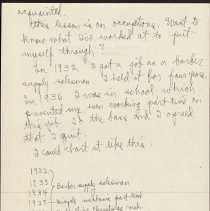 acquainted.
This lesson is on occupations. Want to
know what I've worked at to put
myself through?
In 1932 I got a job as a barber
supply salesman. I held it for four years.
In 1936 I was in school which
prevented my even working part time on
this job. So the boss and I agreed
that I quit.
I could chart it like this:
1932
1933 Barber supply salesman
1934
1935 part time